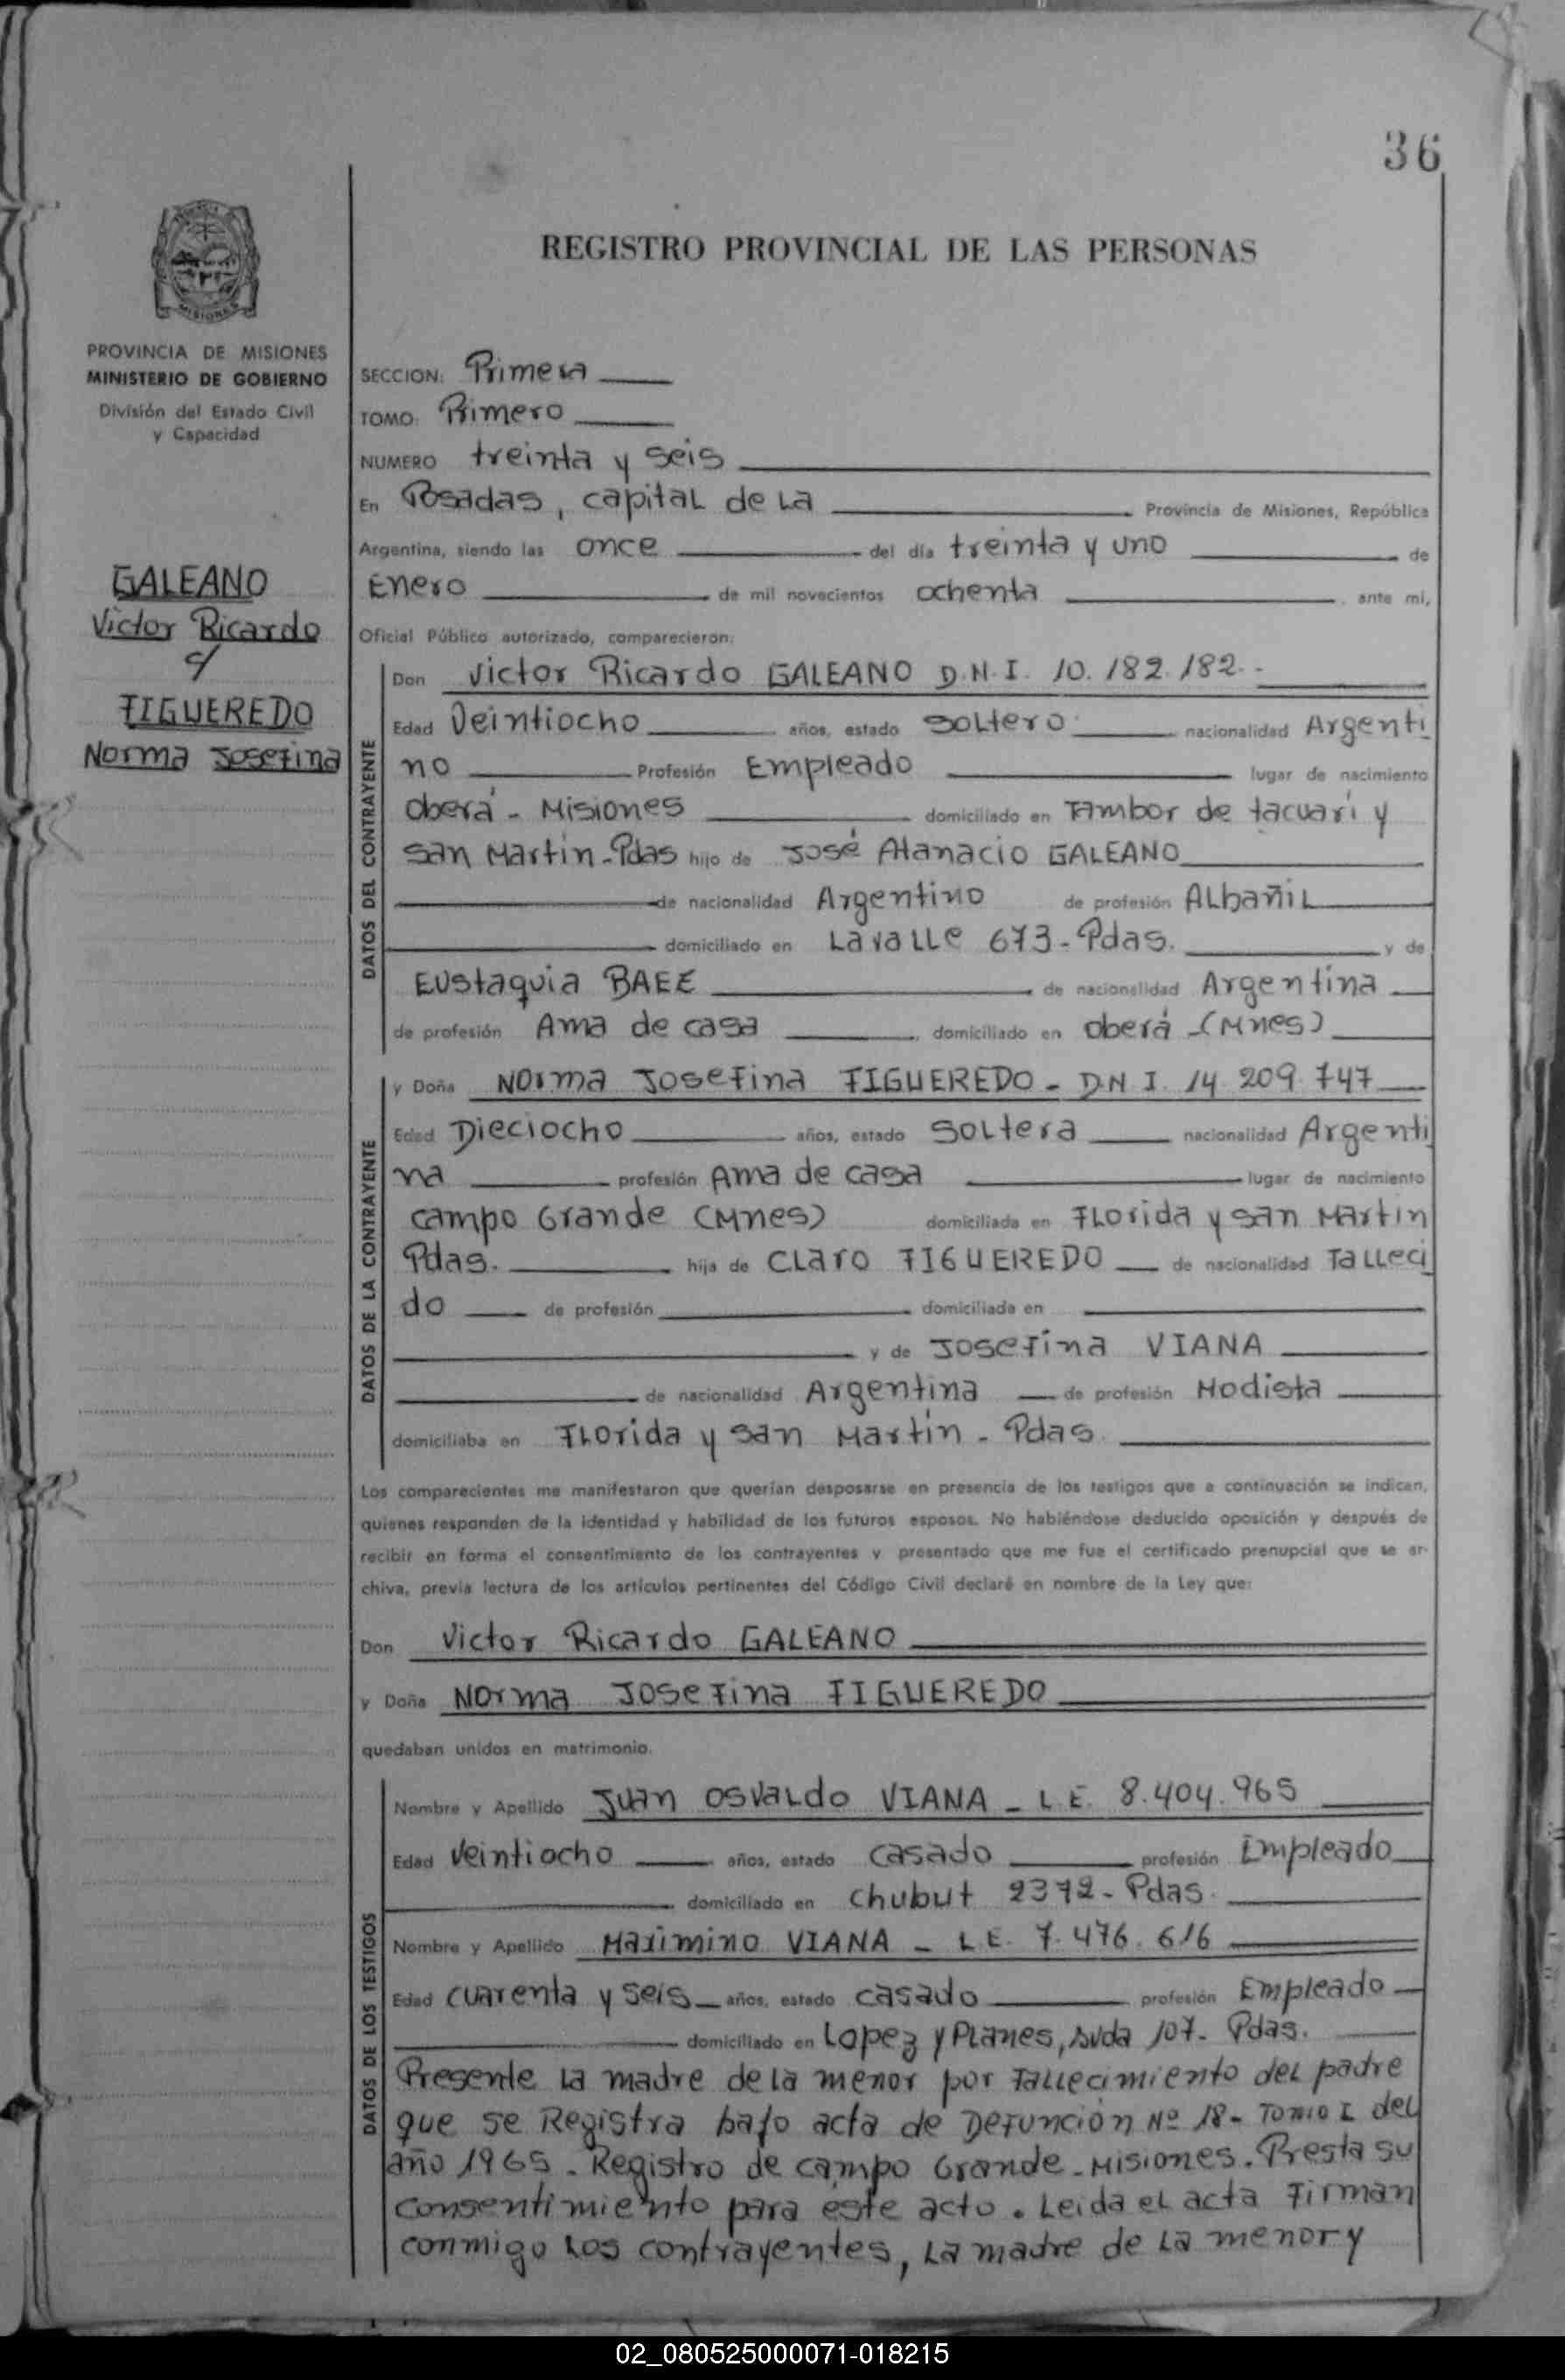 36
REGISTRO PROVINCIAL DE LAS PERSONAS
MISIONES
PROVINCIA DE MISIONES
MINISTERIO DE GOBIERNO
División del Estado Civil
y Capacidad
GALEANO
Victor Ricardo
c/
FIGUEREDO
Norma Josefina
SECCION: Primera
TOMO: Primero
NUMERO treinta y seis
En Posadas, capital de La Provincia de Misiones, República
Argentina, siendo las once del día treinta y uno de
Enero de mil novecientos ochenta, ante mi,
Oficial Público autorizado, comparecieron:
DATOS DEL CONTRAYENTE
Don Victor Ricardo GALEANO D.N.I. 10.182.182.-
Edad Veintiocho años, estado soltero nacionalidad Argenti
no Profesión Empleado lugar de nacimiento
oberá - Misiones domiciliado en Tambor de tacuari y
San Martin - Pdas hijo de José Atanacio GALEANO
de nacionalidad Argentino de profesión Albañil
domiciliado en Lavalle 673 - Pdas. y de
Eustaquia BAEE de nacionalidad Argentina
de profesión Ama de casa, domiciliado en oberá - (Mnes)
DATOS DE LA CONTRAYENTE
y Doña Norma Josefina FIGUEREDO - D.N.I. 14.209.747
Edad Dieciocho años, estado soltera nacionalidad Argenti
na profesión Ama de casa lugar de nacimiento
campo Grande (Mnes) domiciliada en Florida y San Martin
Pdas. hija de Claro FIGUEREDO de nacionalidad Falleci
do de profesión domiciliado en
y de Josefina VIANA
de nacionalidad Argentina de profesión Modista
domiciliaba en Florida y San Martin - Pdas.
Los comparecientes me manifestaron que querían desposarse en presencia de los testigos que a continuación se indican,
quienes responden de la identidad y habilidad de los futuros esposos. No habiéndose deducido oposición y después de
recibir en forma el consentimiento de los contrayentes y presentado que me fue el certificado prenupcial que se ar-
chiva, previa lectura de los artículos pertinentes del Código Civil declaré en nombre de la Ley que:
Don Victor Ricardo GALEANO
y Doña Norma Josefina FIGUEREDO
quedaban unidos en matrimonio.
DATOS DE LOS TESTIGOS
Nombre y Apellido Juan Osvaldo VIANA - L.E. 8.404.965
Edad Veintiocho años, estado casado profesión Empleado
domiciliado en Chubut 2372 - Pdas.
Nombre y Apellido Maximino VIANA - L.E. 7.476.616
Edad cuarenta y seis años, estado casado profesión Empleado
domiciliado en Lopez y Planes, Avda 107 - Pdas.
Presente La madre de La menor por Fallecimiento del padre
que se Registra bajo acta de Defunción Nº 18 - Tomo I del
año 1965 - Registro de campo Grande - Misiones. Presta su
consentimiento para éste acto. Leida el acta Firman
conmigo Los contrayentes, La madre de La menor y
02_080525000071-018215